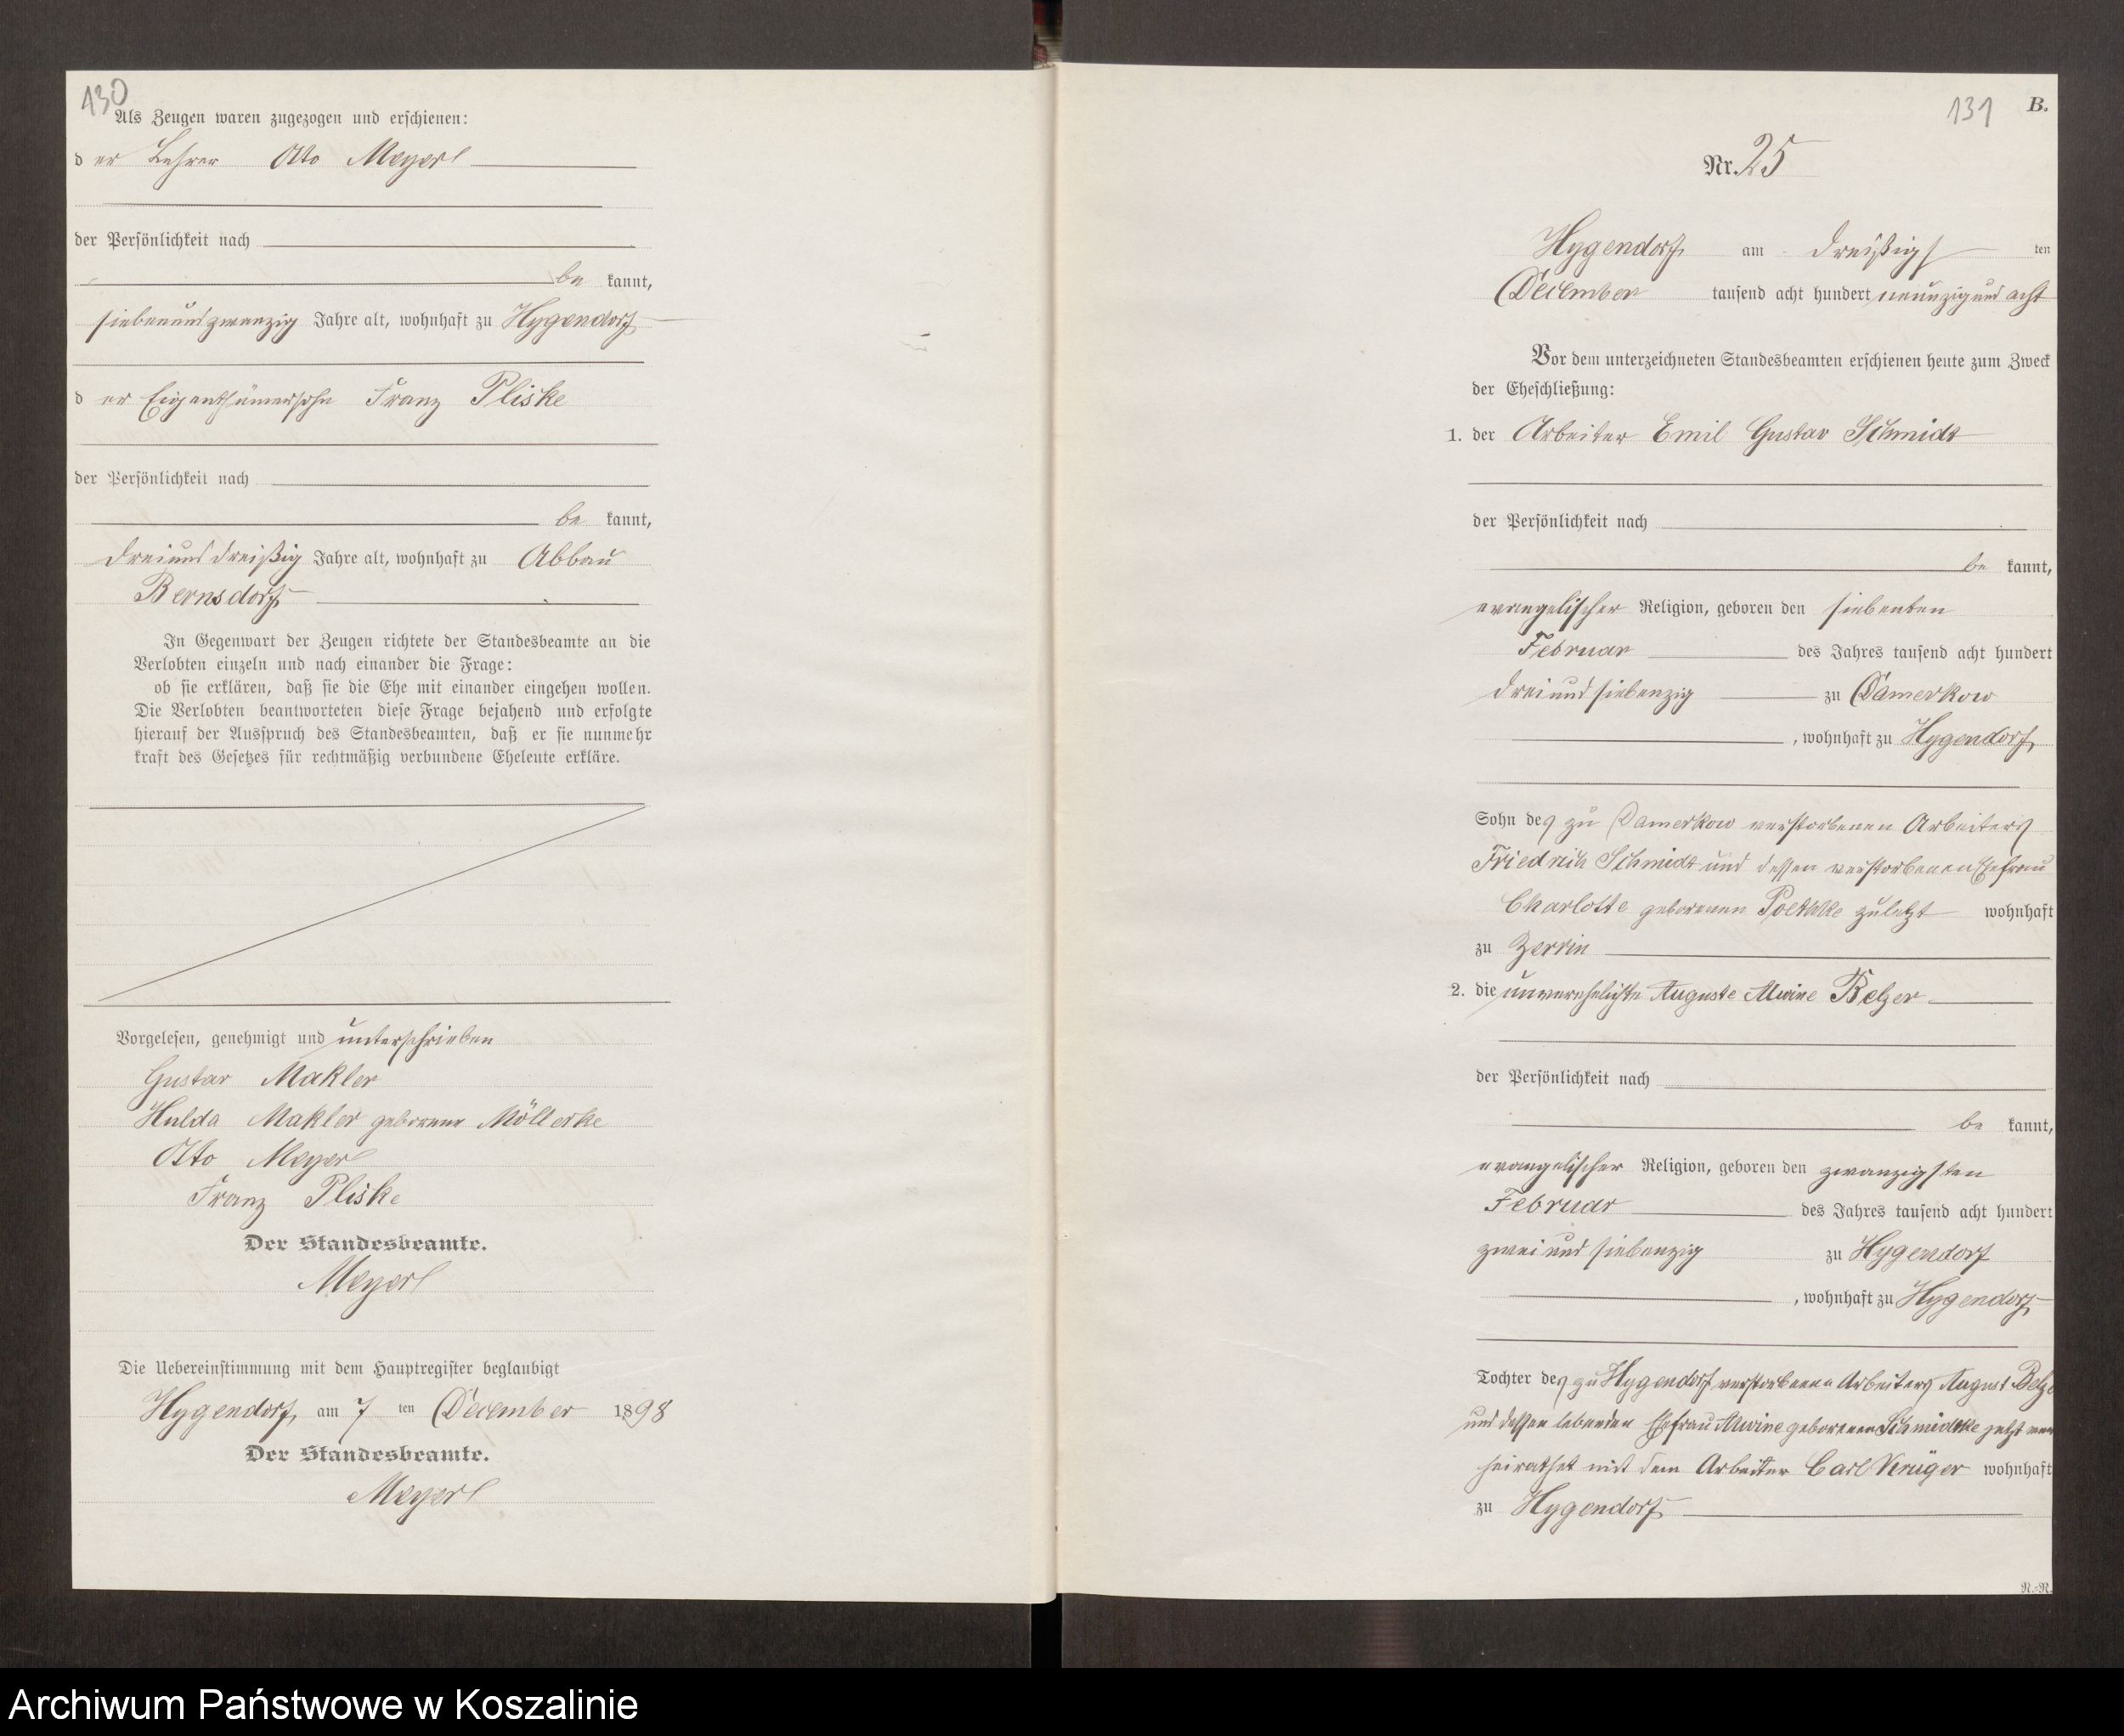 130
Als Zeugen waren zugezogen und erschienen:
der Lehrer Otto Meyer
der Persönlichkeit nach
be kannt,
siebenundzwanzig Jahre alt, wohnhaft zu Hygendorf
der Eigenthümersohn Franz Pliske
der Persönlichkeit nach
be kannt,
dreiunddreißig Jahre alt, wohnhaft zu Abbau
Bernsdorf
In Gegenwart der Zeugen richtete der Standesbeamte an die
Verlobten einzeln und nach einander die Frage:
ob sie erklären, daß sie die Ehe mit einander eingehen wollen.
Die Verlobten beantworteten diese Frage bejahend und erfolgte
hierauf der Ausspruch des Standesbeamten, daß er sie nunmehr
kraft des Gesetzes für rechtmäßig verbundene Eheleute erkläre.
Vorgelesen, genehmigt und unterschrieben
Gustav Makler
Hulda Makler geborene Möllerke
Otto Meyer
Franz Pliske
Der Standesbeamte.
Meyer
Die Uebereinstimmung mit dem Hauptregister beglaubigt
Hygendorf, am 7 ten December 1898
Der Standesbeamte.
Meyer
131 B.
Nr. 25
Hygendorf am dreißigs ten
December tausend acht hundert neunzig und acht
Vor dem unterzeichneten Standesbeamten erschienen heute zum Zweck
der Eheschließung:
1. der Arbeiter Emil Gustav Schmidt
der Persönlichkeit nach
be kannt,
evangelischer Religion, geboren den siebenten
Februar des Jahres tausend acht hundert
dreiundsiebenzig zu Damerkow
, wohnhaft zu Hygendorf
Sohn des zu Damerkow verstorbenen Arbeiters
Friedrich Schmidt und dessen verstorbenen Ehefrau
Charlotte geborenen zuletzt wohnhaft
zu Zerrin
2. die unverehelichte Auguste Alwine Belzer
der Persönlichkeit nach
be kannt,
evangelischer Religion, geboren den zwanzigsten
Februar des Jahres tausend acht hundert
zwei und siebenzig zu Hygendorf
, wohnhaft zu Hygendorf
Tochter des zu Hygendorf verstorbenen Arbeiters August Belze
und dessen lebenden Ehefrau Alwine geborenen Schmidtke jetzt ver
heirathet mit dem Arbeiter Carl Krüger wohnhaft
zu Hygendorf
N.-N.
Archiwum Państwowe w Koszalinie